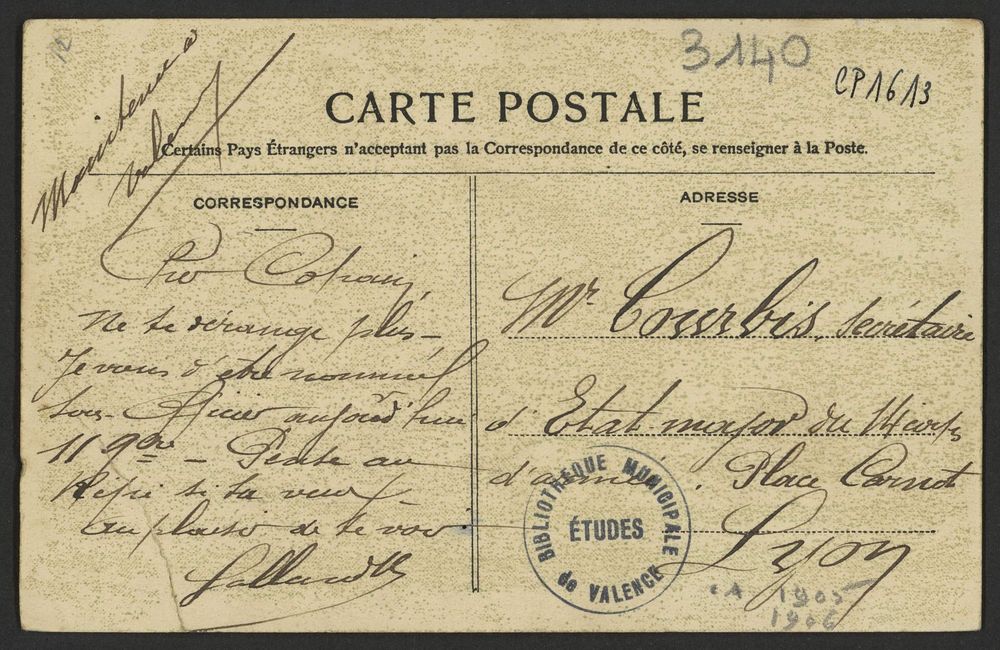 12
3140
CP1613
Maintenu à
CARTE POSTALE
Certains Pays Étrangers n'acceptant pas la Correspondance de ce côté, se renseigner à la Poste.
CORRESPONDANCE
Copain,
Ne te dérange plus -
Je viens d'être nommé
Sous-Officier aujourd'hui
11 9bre - Pense au
Képi si tu veux
au plaisir de te voir
ADRESSE
Mr Courbis, secrétaire
d'Etat major du 14e corps
d'armée. Place Carnot
Lyon
BIBLIOTHEQUE MUNICIPALE
ÉTUDES
de VALENCE
CA 1905
1906